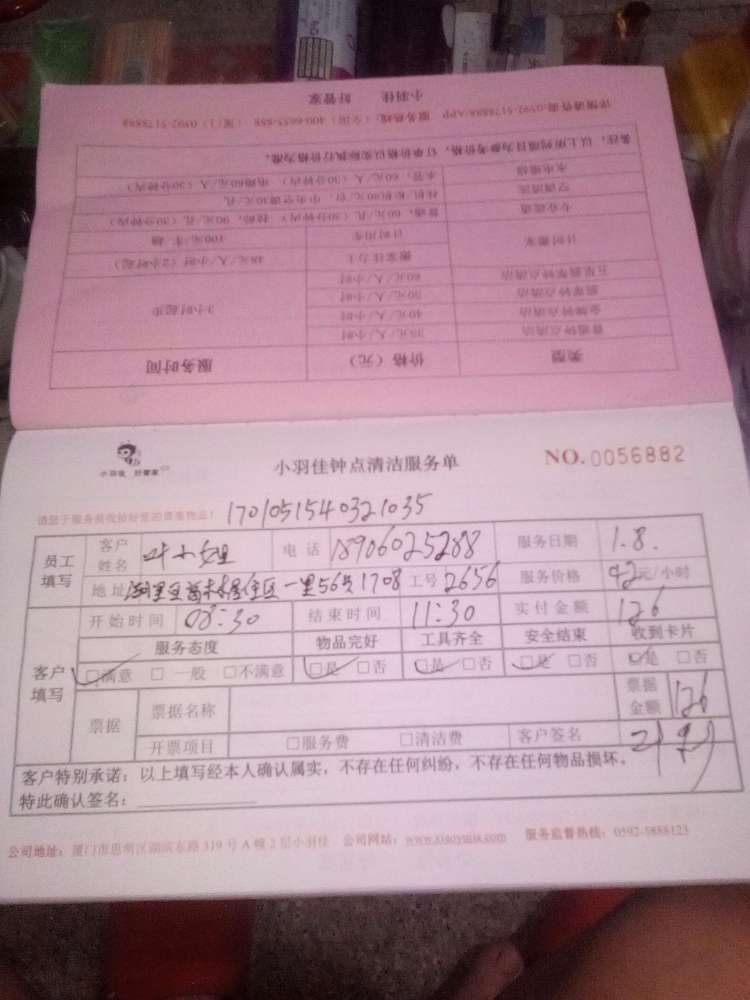 小羽佳 好管家
详情请咨询:0592-5178898/APP 服务热线:(全国)400-6655-888 (厦门)0592-5178898
备注:以上所列项目为参考价格,订单价格以实际执行价格为准。
类型 价格(元) 服务时间
普通钟点清洁 元/人/小时 3小时起步
金牌钟点清洁 40元/人/小时
翡翠钟点清洁 50元/人/小时
五星翡翠钟点清洁 60元/人/小时
计时搬家 搬家壮力士 48元/人/小时(2小时起)
计时用车 100元/车/趟
专业疏通 普通:60元/孔(30分钟内) 特殊:90元/孔(30分钟内)
空调清洗
水电维修 水管:60元/人(30分钟内) 电路60元/人(30分钟内)
小羽佳 好管家
小羽佳钟点清洁服务单
NO.0056882
请您于服务前收拾好您的贵重物品!
1701051540321035
员工填写 客户姓名 叶小姐 电话 18906025288 服务日期 1.8.
地址 湖里区 住区一里56号1708 工号 2656 服务价格 42元/小时
客户填写 开始时间 08:30 结束时间 11:30 实付金额 126
服务态度 物品完好 工具齐全 安全结束 收到卡片
□满意 □一般 □不满意 □是 □否 □是 □否 □是 □否 □是 □否
票据 票据名称 票据金额 126
开票项目 □服务费 □清洁费 客户签名
客户特别承诺:以上填写经本人确认属实,不存在任何纠纷,不存在任何物品损坏。
特此确认签名:
公司地址:厦门市思明区湖滨东路319号A幢2层小羽佳 公司网站:www.xiaoyujia.com 服务监督热线:0592-5888123